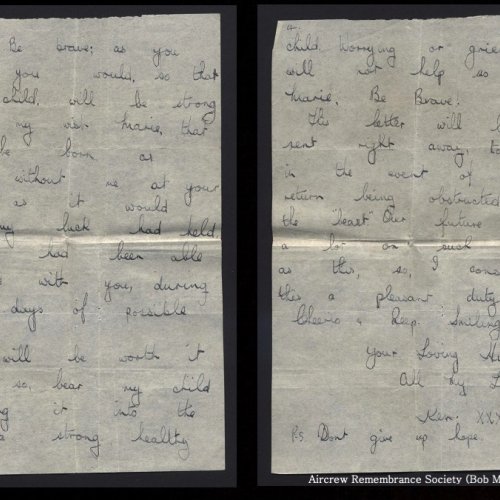 Be brave; as you
you would, so that
child, will be strong
my wish Marie, that
be born as
without me at your
as it would
my luck had held,
had been able
with you, during
days of possible
will be worth it
so, bear my child
it into the
a strong healthy
4.
child. Worrying or
will not help so
Marie, Be Brave!
This letter will
sent right away,
in the event of
return being obstructed
the "least" Our future
a lot on such
as this, so, I
this a pleasant duty
Cheerio & Keep Smiling
Your Loving
All my
Ken. XX
P.S. Dont give up hope.
Aircrew Remembrance Society (Bob M